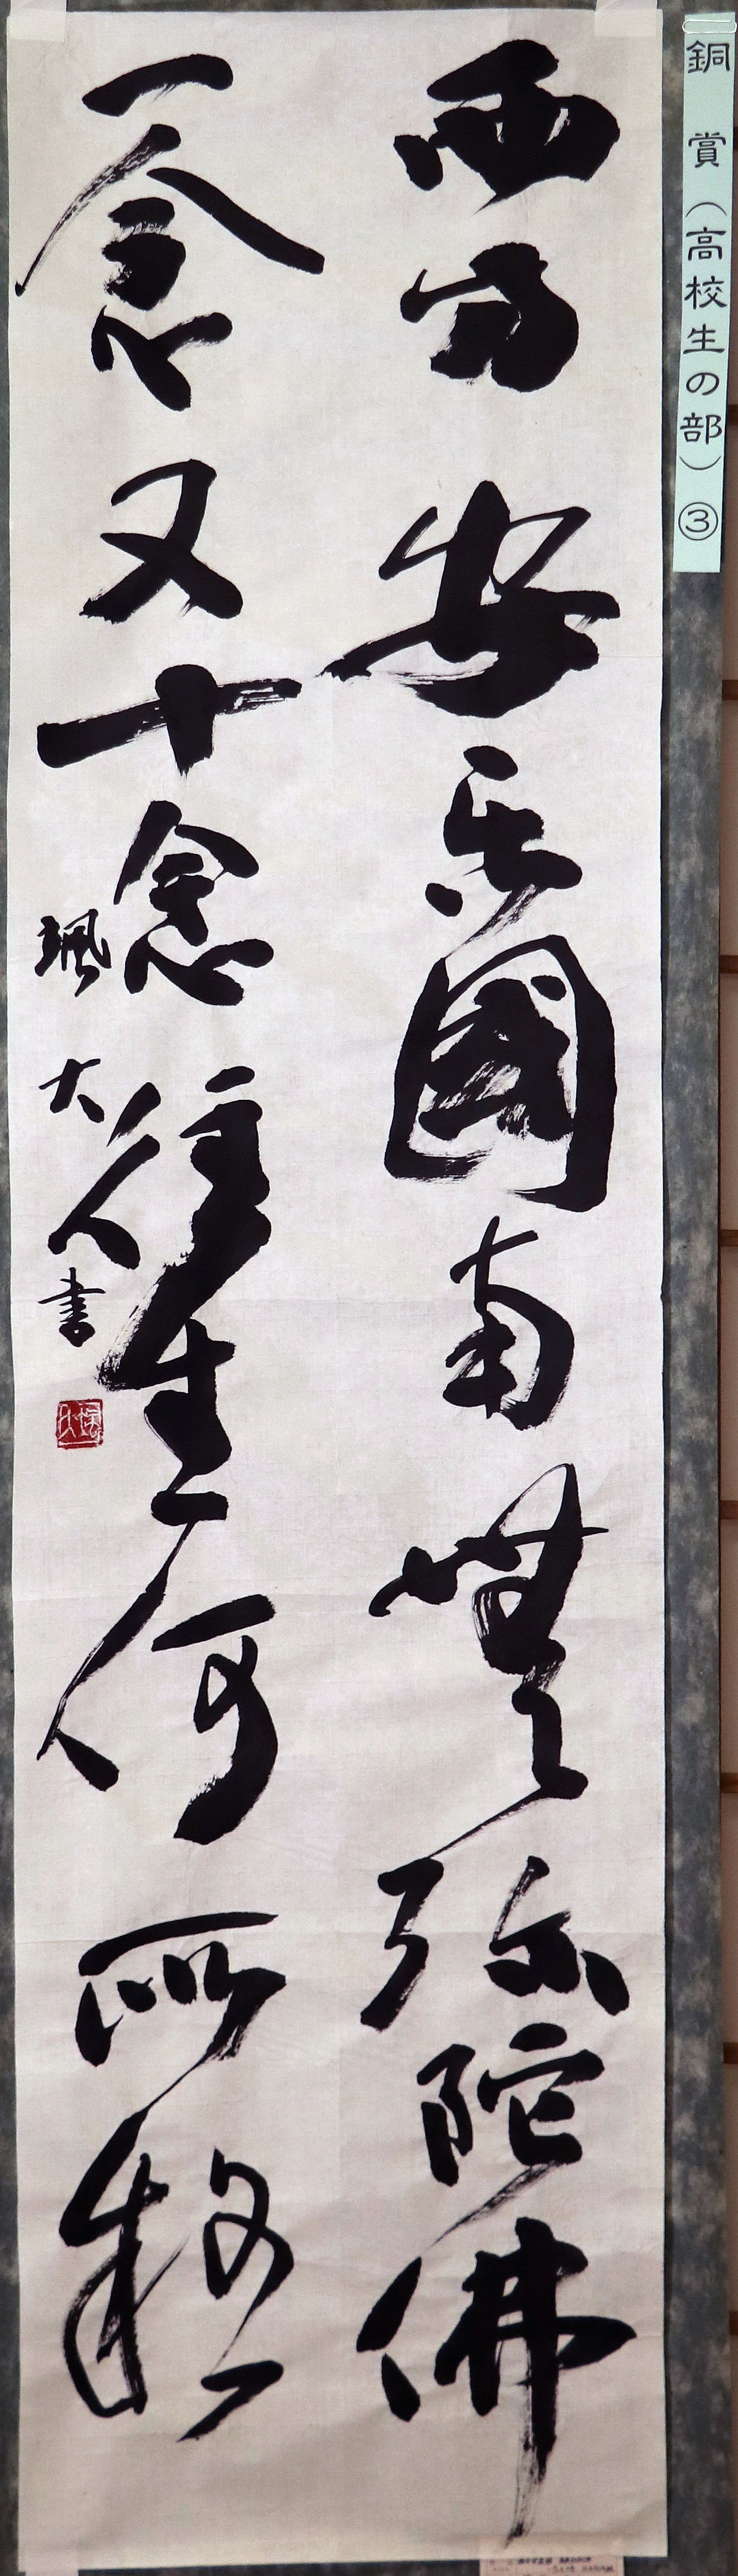 銅賞（高校生の部）③
西方安楽國南無弥陀佛
一念又十念往生何所移
颯大書